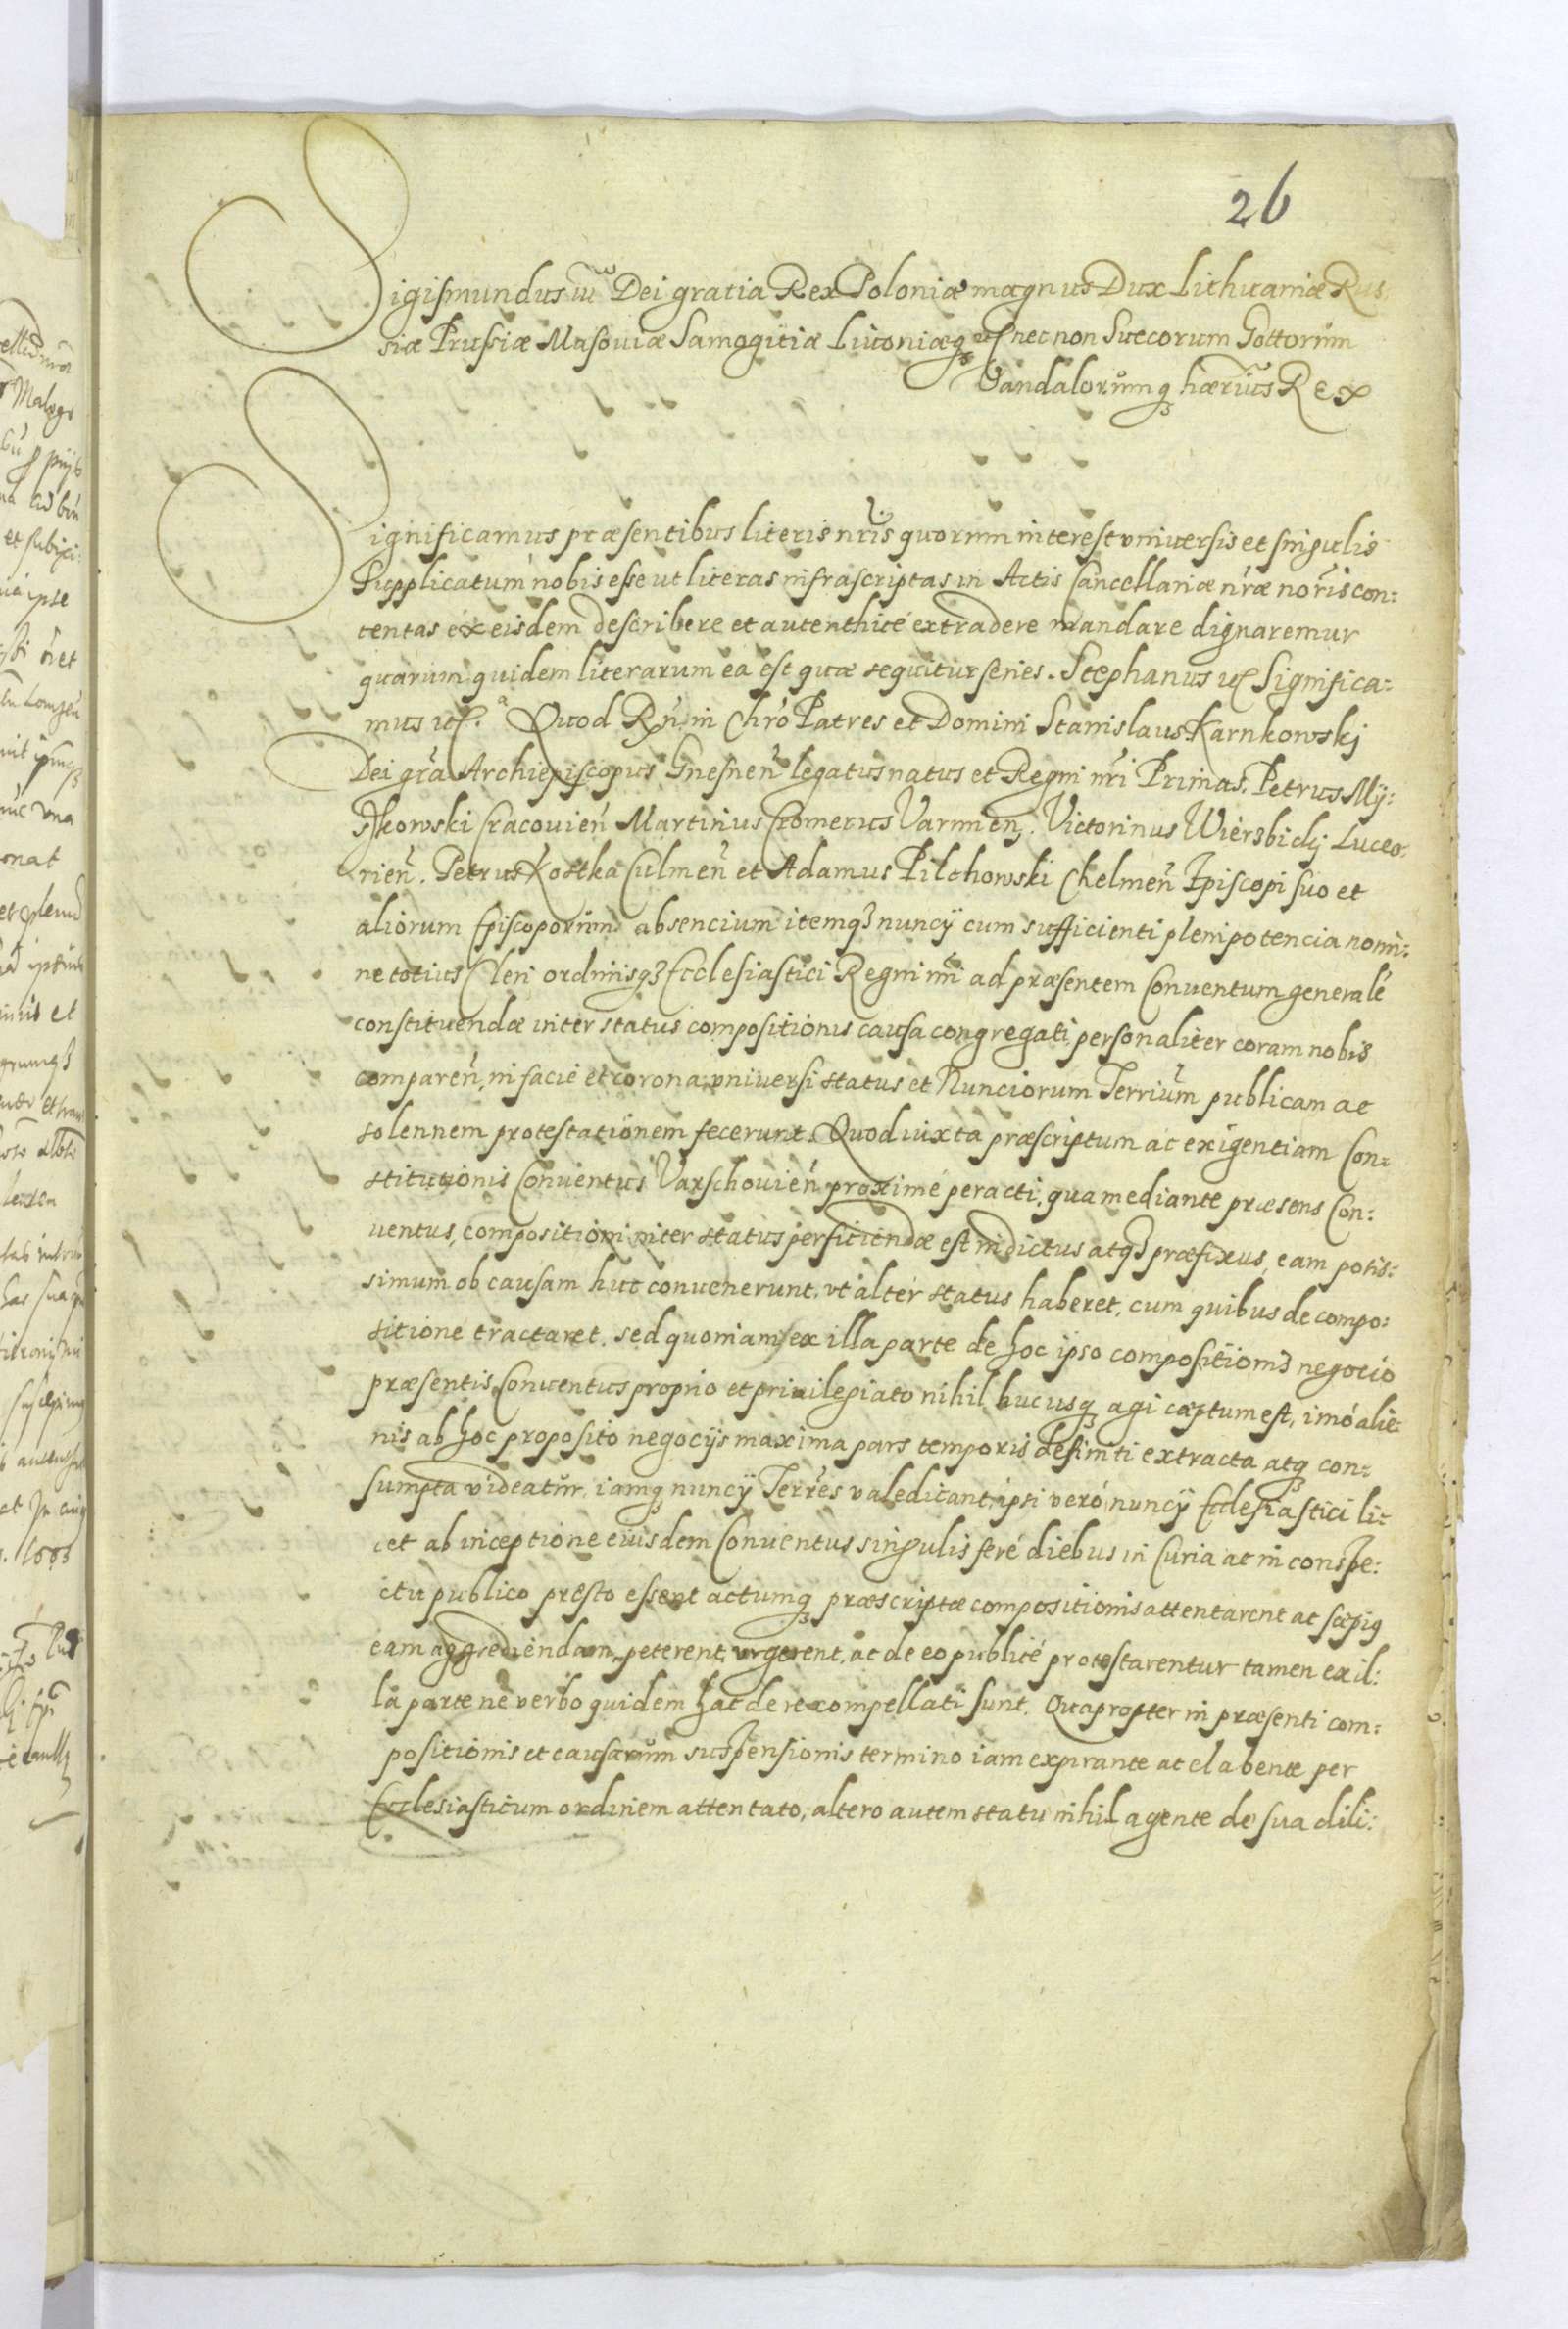 26
Sigismundus iii Dei gratia Rex Poloniæ magnus Dux Lithuaniæ Rus
siæ Prussiæ Masouiæ Samogitiæ Liuoniæq3 etc necnon Suecorum Gottorum
Vandalorumq3 hæritus Rex
Significamus præsentibus literis nr̃is quorum interest vniversis et singulis
Supplicatum nobis esse ut literas infrascriptas in Actis Cancellariæ nr̃æ norĩs con:
tentas ex eisdem describere et autenthicé extradere mandare dignaremur
quarum quidem literarum ea est quæ sequitur series. Stephanus etc Significa:
mus etc. Quod Rñ in Chrõ Patres et Domini Stanislaus Karnkowskj
Dei grã Archiepiscopus Gnesneñ legatus natus et Regni nr̃i Primas. Petrus Mÿ:
szkowski Cracouień Martinus Cromerus Varmień. Victorinus Wierzbicky Luceo:
rień. Petrus Kostka Culmeñ et Adamus Pilchowski Chelmeñ Episcopi suo et
aliorum Episcoporum absencium itemq3 nuncÿ cum sufficienti plenipotencia nomi:
ne totius Cleri ordinisq3 Ecclesiastici Regni nr̃i ad præsentem Conuentum generalé
constituendæ inter status compositionis causa congregati personaliter coram nobis
compareñ, in facie et corona vniuersi status et Nunciorum Terrium publicam ac
solennem protestationem fecerunt. Quod iuxta præscriptum ac exigentiam Con:
stitutionis Conuentus Varschouień proximé peracti, qua mediante præsens Con:
uentus, compositioni inter status perficiendæ est indictus atq3 præfixus, eam potis:
simum ob causam huc conuenerunt, vt alter status haberet, cum quibus de compo:
sitione tractaret. sed quoniam ex illa parte de hoc ipso compositionis negocio
præsentis Conuentus proprio et priuilegiato nihil hucusq3 agi cæptum est, imó alie:
nis ab hoc proposito negocÿs maxima pars temporis definiti extracta atq3 con:
sumpta videatur. iamq3 nuncÿ Terrẽs valedicant, ipsi veró nuncÿ Ecclesiastici li:
cet ab inceptione eiusdem Conuentus singulis feré diebus in Curia ac in conspe:
ctu publico præsto essent actumq3 præscriptæ compositionis attentarent ac sæpius
eam aggrediendam, peterent, vrgerent, ac de eo publicé protestarentur tamen ex il:
la parte ne verbo quidem hac de re compellati sunt. Quapropter in præsenti com:
positionis et causarum suspensionis termino iam expirante ac elabente per
Ecclesiasticum ordinem attentato, altero autem statu nihil agente de sua dili: